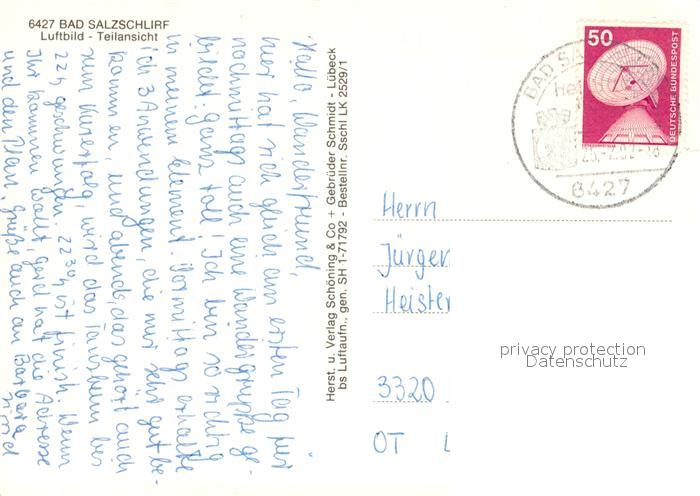 6427 BAD SALZSCHLIRF
Luftbild - Teilansicht
Hallo, Wanderfreund,
hier hat sich gleich am ersten Tag für
nachmittags auch eine Wandergruppe ge-
bildet. Ganz toll! Ich bin so richtig
in meinem Element. Vormittags erhalte
ich 3 Anwendungen, die mir sehr gut be-
kommen, und abends, das gehört auch
zum Kurerfolg, wird das Tanzbein bis
22h geschwungen. 22 30h ist finish. Wenn
Ihr kommen wollt, Gerd hat die Adresse
und den Plan. Grüße auch an Barbara
Herst. u. Verlag Schöning & Co + Gebrüder Schmidt - Lübeck
bs Luftaufn., gen. SH 1-71792 - Bestellnr. Sschl LK 2529/1
50
DEUTSCHE BUNDESPOST
BAD SA
Hei
6427
Herrn
Jürgen
Heister
3320
OT
privacy protection
Datenschutz